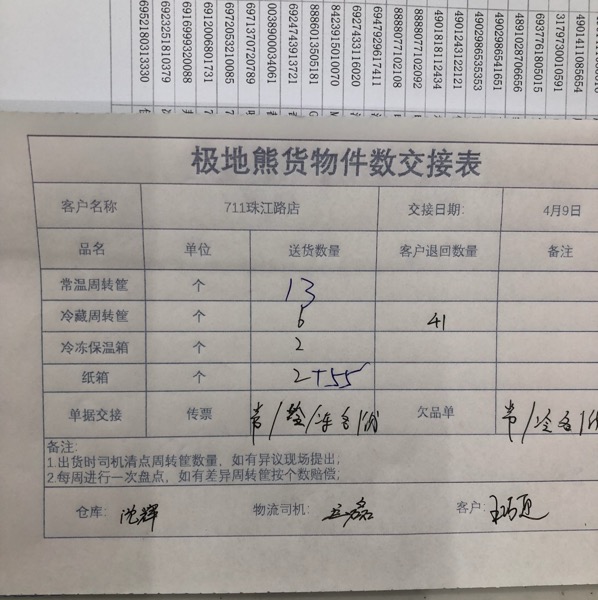 6952180313330
6923251810379
6916999320088
6912006801731
6972053210085
6971370720789
0038900034061
6924743913721
8886013505181
8423915010070
6927433116020
6947929617411
8888077102108
8888077102092
4901818112434
4901243122121
4902986535353
4902986541651
4891028706656
6937761805015
3179730010591
4901411085654
极地熊货物件数交接表
客户名称 711珠江路店 交接日期: 4月9日
品名 单位 送货数量 客户退回数量 备注
常温周转筐 个 13
冷藏周转筐 个 6 41
冷冻保温箱 个 2
纸箱 个 2+55
单据交接 传票 常/冷/冻各1份 欠品单 常/冷各1份
备注:
1.出货时司机清点周转筐数量，如有异议现场提出;
2.每周进行一次盘点，如有差异周转筐按个数赔偿;
仓库: 沈辉 物流司机: 客户: